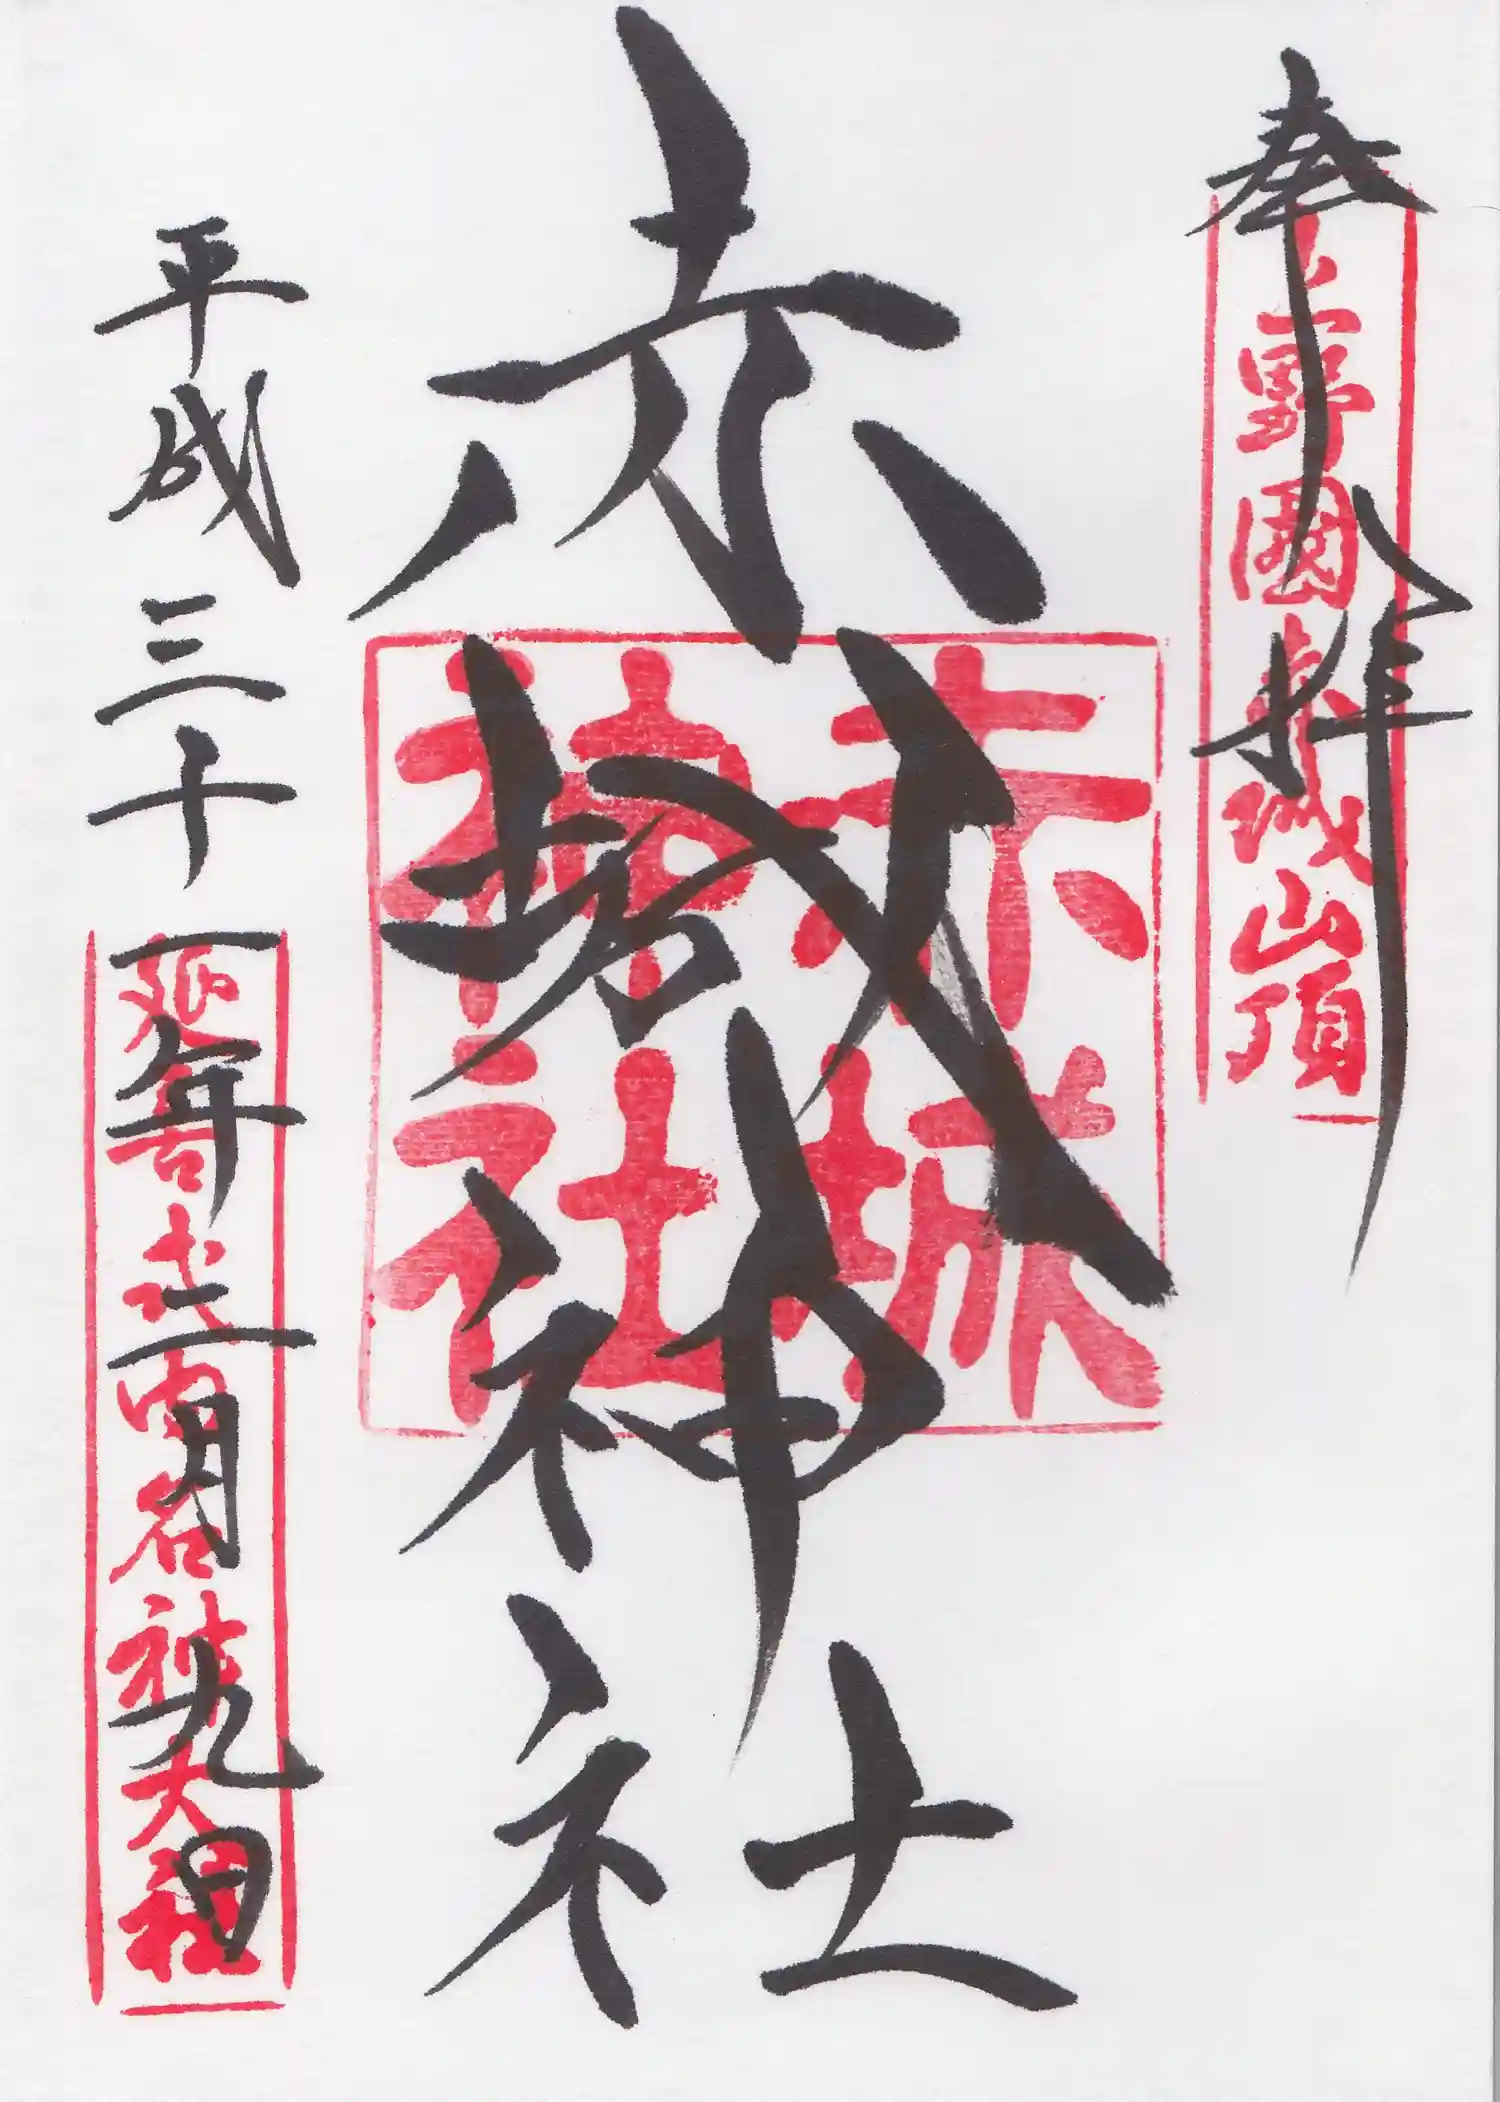 奉拝
上野國赤城山頂
赤城神社
赤城
神社
平成三十一年二月九日
延喜式内名神大社